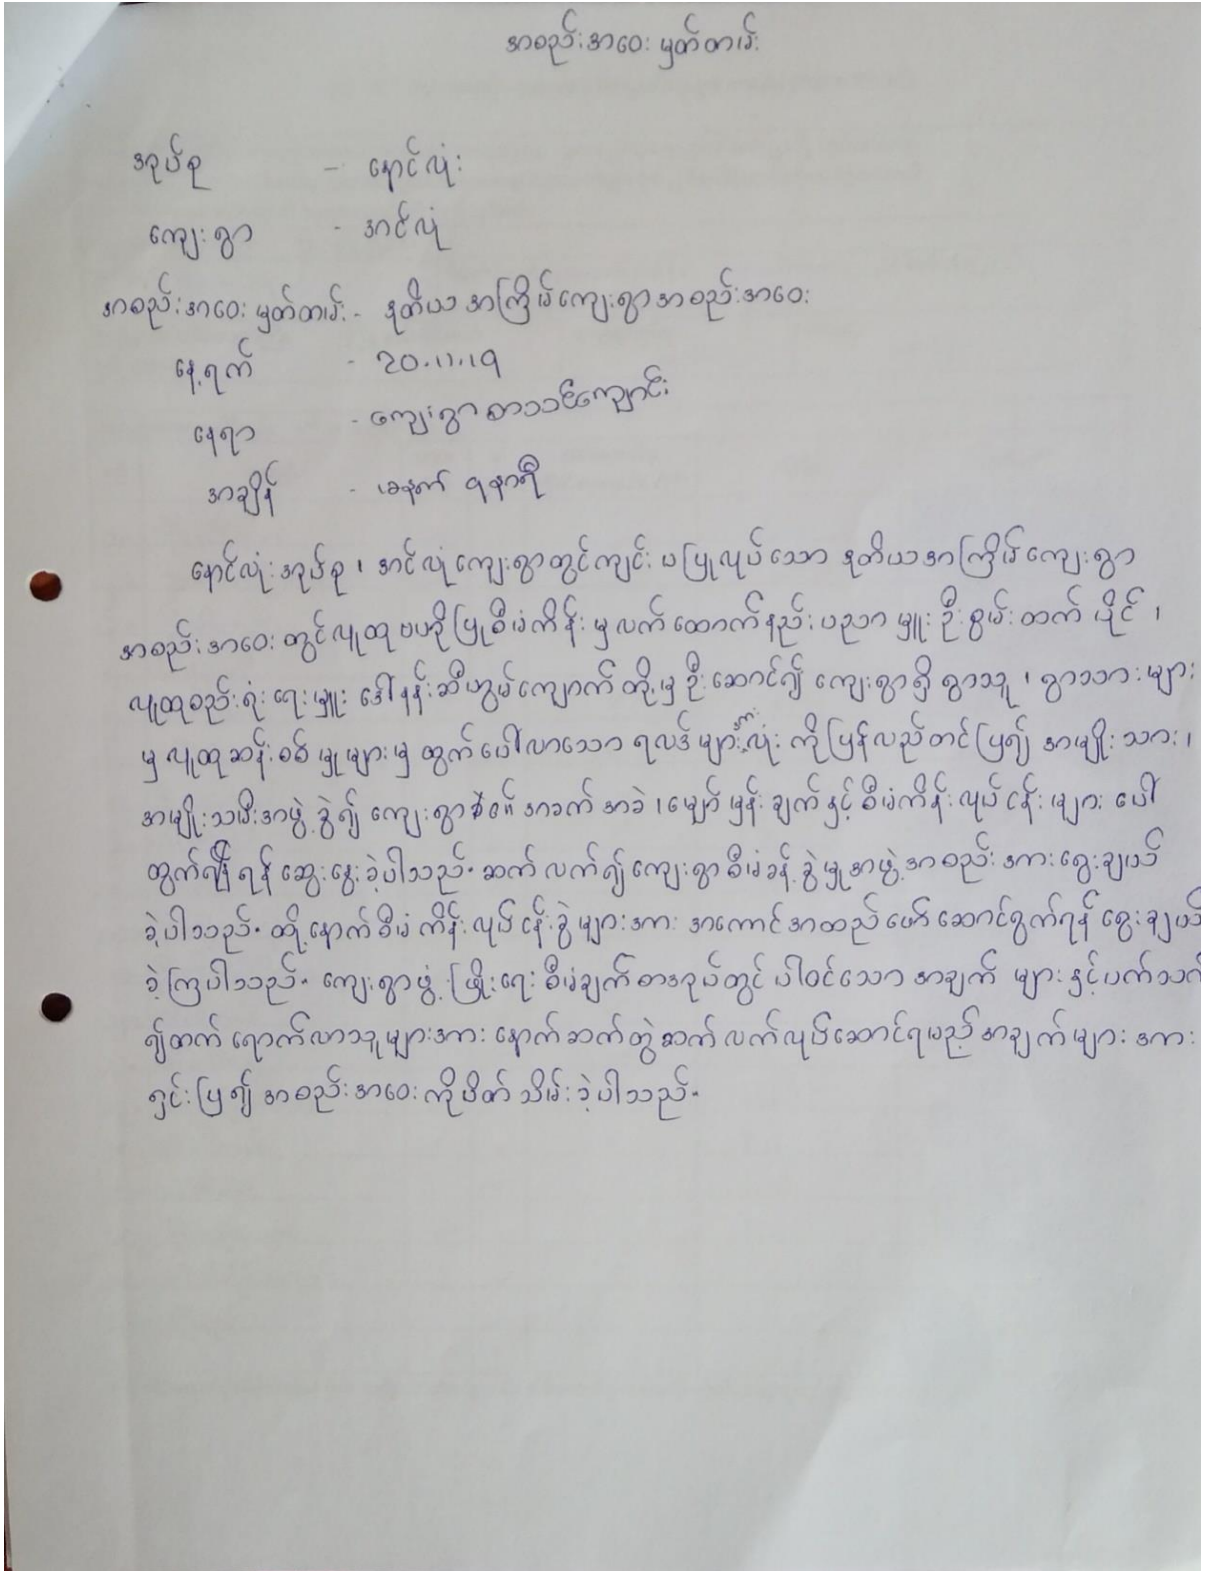 အစည်းအဝေး မှတ်တမ်း
အုပ်စု - နောင်လုံး
ကျေးရွာ - အင်လုံ
အစည်းအဝေး မှတ်တမ်း - ဒုတိယ အကြိမ်ကျေးရွာ အစည်းအဝေး
နေ့ရက် - ၃၀.၁၁.၁၅
နေရာ - ကျေးရွာ စာသင်ကျောင်း
အချိန် - မနက် ၅နာရီ
နောင်လုံး အုပ်စု ၊ အင်လုံကျေးရွာတွင်ကျင်း ပပြုလုပ်သော ဒုတိယအကြိမ်ကျေးရွာ
အစည်းအဝေး တွင်လူထု ဗဟိုပြုစီမံကိန်း မှ လက်ထောက်နည်းပညာ မှူး ဦးစွမ်းထက် ပိုင် ၊
လူထုစည်းရုံး ရေးမှူး ဒေါ်နန်းဆီဟွမ်ကျောက် တို့မှ ဦးဆောင်၍ ကျေးရွာရှိ ရွာသူ ၊ ရွာသား များ
မှ လူထုဆန်းစစ် မှုများ မှ ထွက်ပေါ်လာသော ရလဒ် များအားလုံး ကိုပြန်လည်တင်ပြ၍ အမျိုးသား ၊
အမျိုးသမီးအဖွဲ့ ခွဲ၍ ကျေးရွာ၏ အခက်အခဲ ၊ မျှော်မှန်းချက်နှင့် စီမံကိန်း လုပ်ငန်းများ ပေါ်
ထွက်ရှိရန် ဆွေးနွေးခဲ့ပါသည်။ ဆက်လက်၍ ကျေးရွာ စီမံခန့်ခွဲမှုအဖွဲ့အစည်း အားရွေးချယ်
ခဲ့ပါသည်။ ထို့နောက် စီမံကိန်း လုပ်ငန်းခွဲများအား အကောင်အထည်ဖော်ဆောင်ရွက်ရန် ရွေးချယ်
ခဲ့ကြပါသည်။ ကျေးရွာဖွံ့ဖြိုးရေး စီမံချက်စာအုပ်တွင် ပါဝင်သော အချက် များနှင့်ပက်သက်
၍တက်ရောက်လာသူများအား နောက်ဆက်တွဲဆက်လက်လုပ်ဆောင်ရမည့် အချက်များ အား
ရှင်းပြ၍ အစည်းအဝေး ကိုပိတ်သိမ်း ခဲ့ပါသည်။